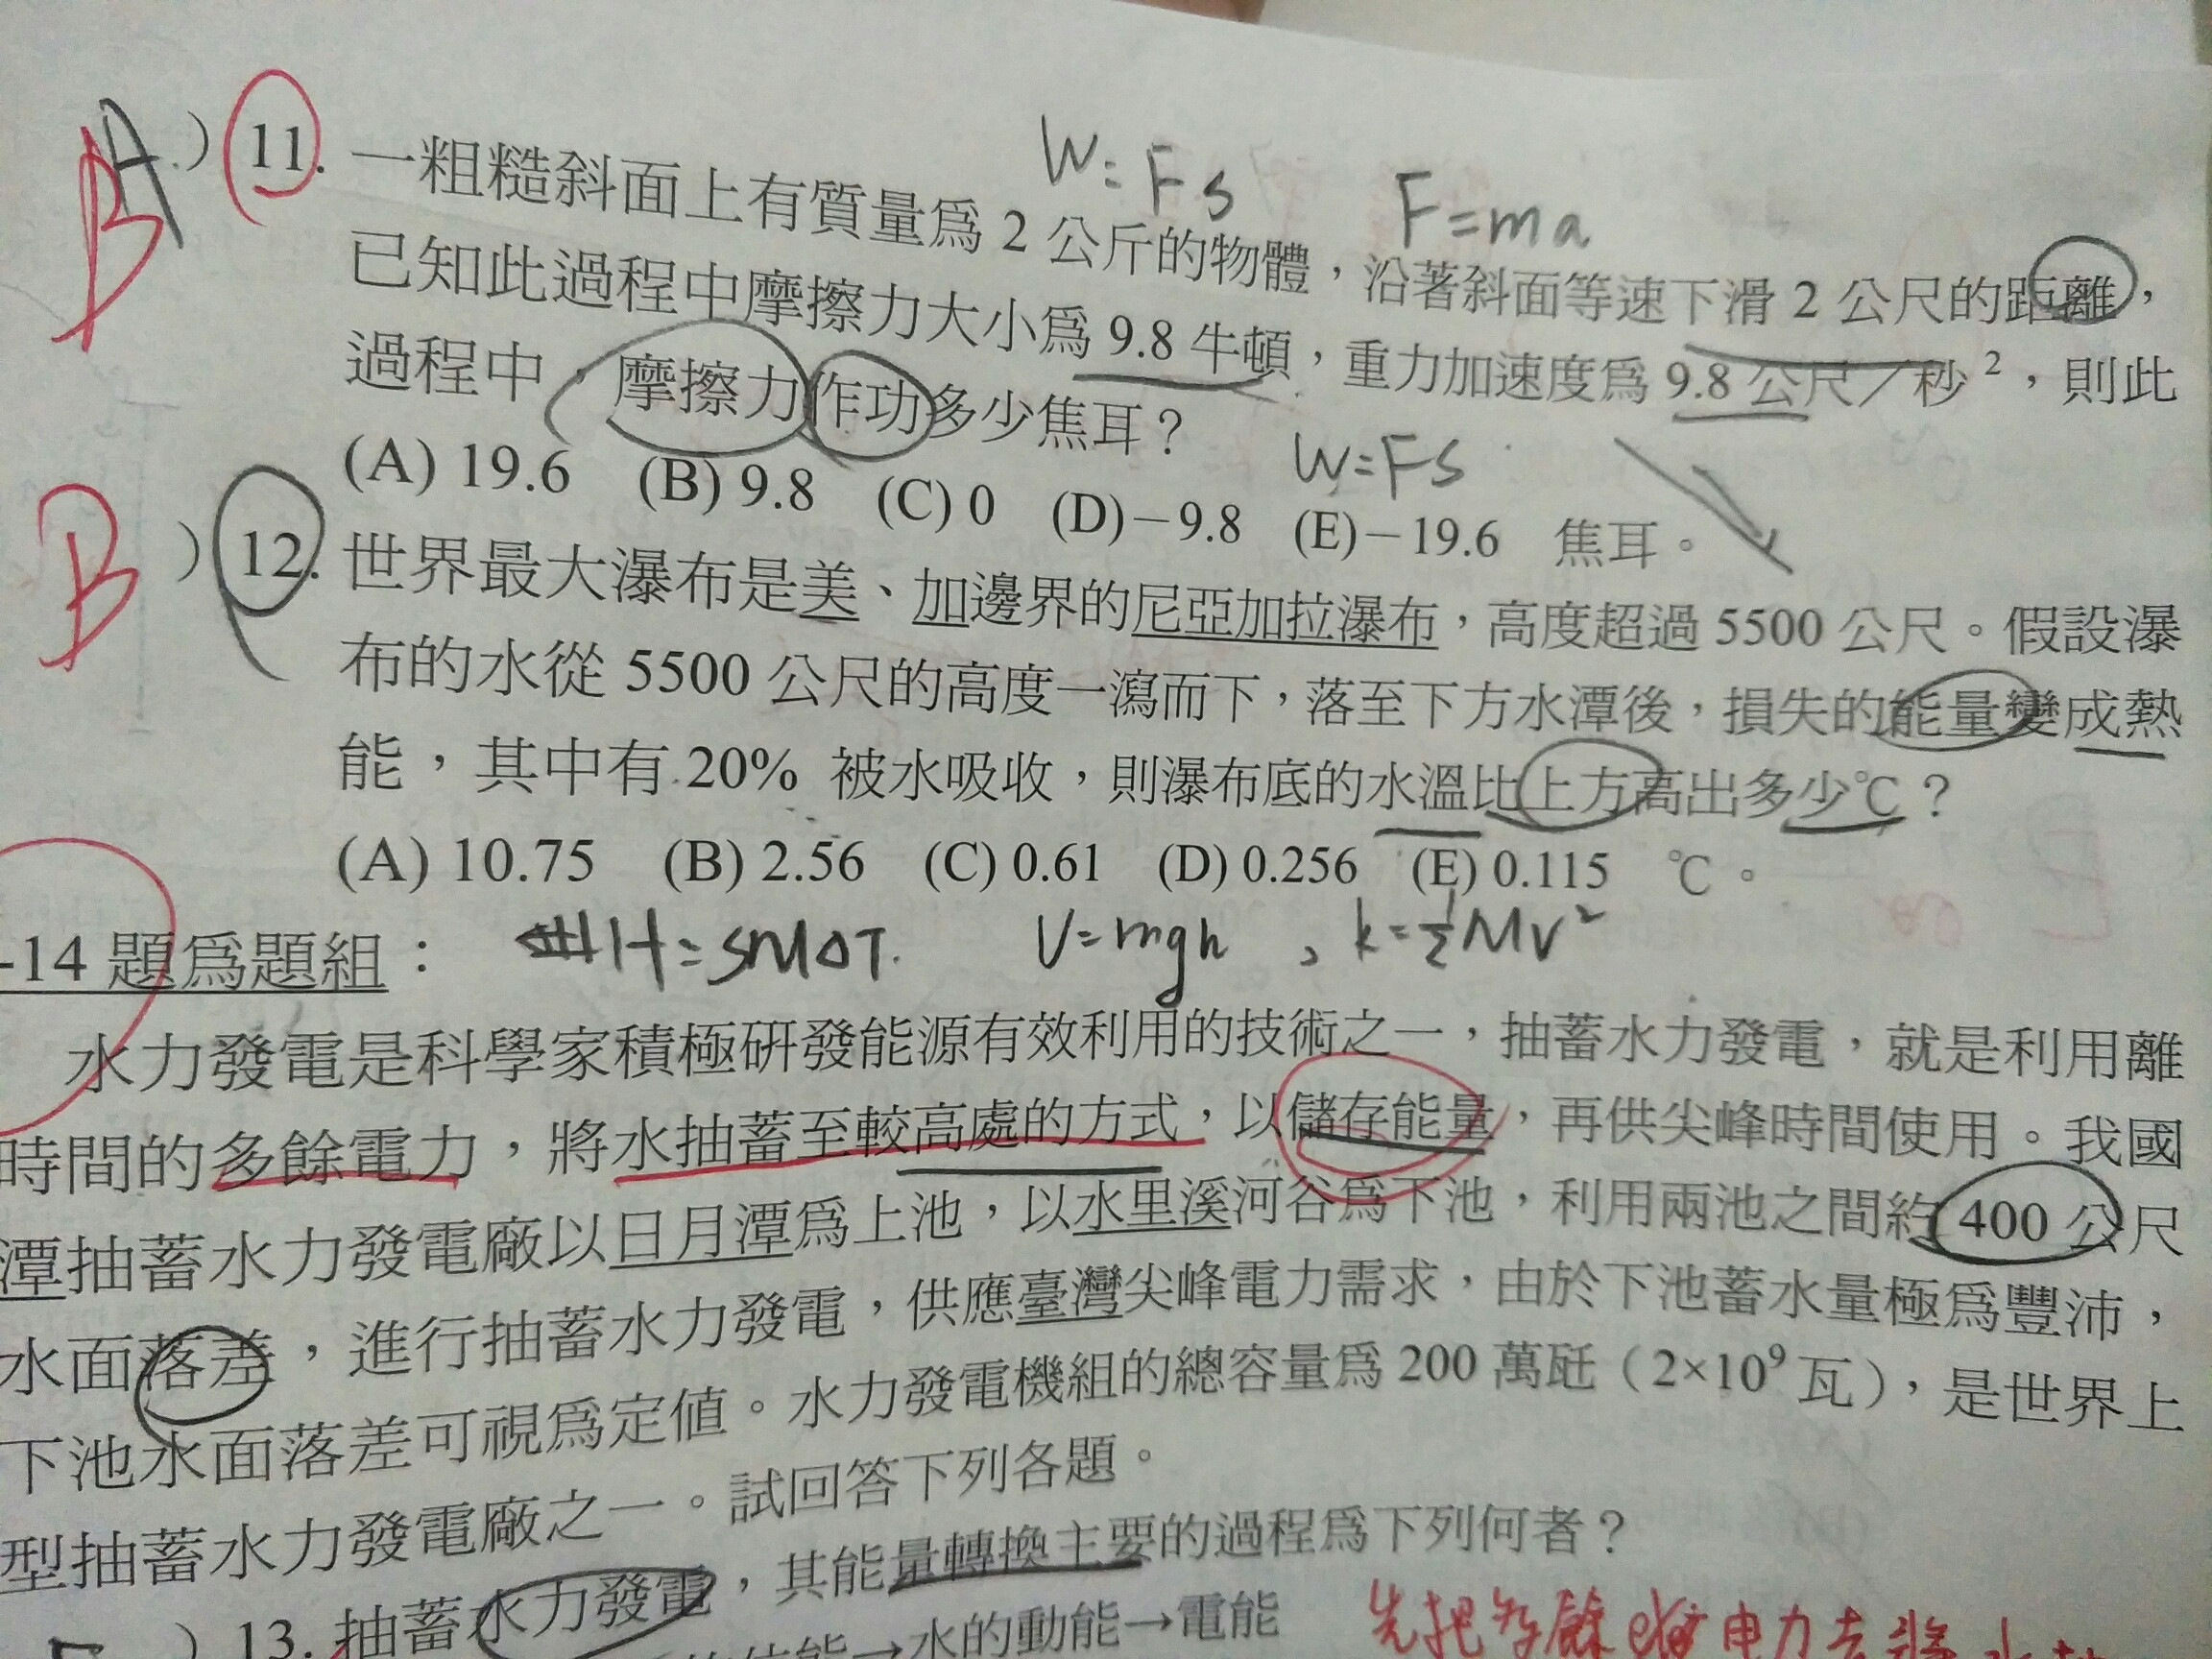 W=FS
F=ma
A B ) 11. 一粗糙斜面上有質量為 2 公斤的物體，沿著斜面等速下滑 2 公尺的距離，
已知此過程中摩擦力大小為 9.8 牛頓，重力加速度為 9.8 公尺／秒²，則此
過程中，摩擦力作功多少焦耳？
W=FS
(A) 19.6 (B) 9.8 (C) 0 (D)－9.8 (E)－19.6 焦耳。
B ) 12. 世界最大瀑布是美、加邊界的尼亞加拉瀑布，高度超過 5500 公尺。假設瀑
布的水從 5500 公尺的高度一瀉而下，落至下方水潭後，損失的能量變成熱
能，其中有 20% 被水吸收，則瀑布底的水溫比上方高出多少℃？
(A) 10.75 (B) 2.56 (C) 0.61 (D) 0.256 (E) 0.115 ℃。
H=SMΔT. U=mgh , k=½MV²
-14 題為題組：
水力發電是科學家積極研發能源有效利用的技術之一，抽蓄水力發電，就是利用離
時間的多餘電力，將水抽蓄至較高處的方式，以儲存能量，再供尖峰時間使用。我國
潭抽蓄水力發電廠以日月潭為上池，以水里溪河谷為下池，利用兩池之間約 400 公尺
水面落差，進行抽蓄水力發電，供應臺灣尖峰電力需求，由於下池蓄水量極為豐沛，
下池水面落差可視為定值。水力發電機組的總容量為 200 萬瓩（2×10⁹ 瓦），是世界上
型抽蓄水力發電廠之一。試回答下列各題。
) 13. 抽蓄水力發電，其能量轉換主要的過程為下列何者？
位能→水的動能→電能
先把多餘的电力去將水抽